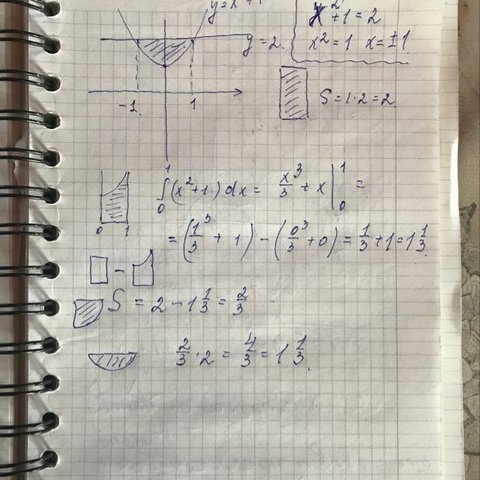 x² + 1 = 2
y = 2.
x² = 1 x = ±1.
-1 1
S = 1·2 = 2.
∫₀¹ (x² + 1) dx = x³/3 + x |₀¹ =
0 1
= (1³/3 + 1) - (0³/3 + 0) = 1/3 + 1 = 1 1/3.
S = 2 - 1 1/3 = 2/3
2/3 · 2 = 4/3 = 1 1/3.